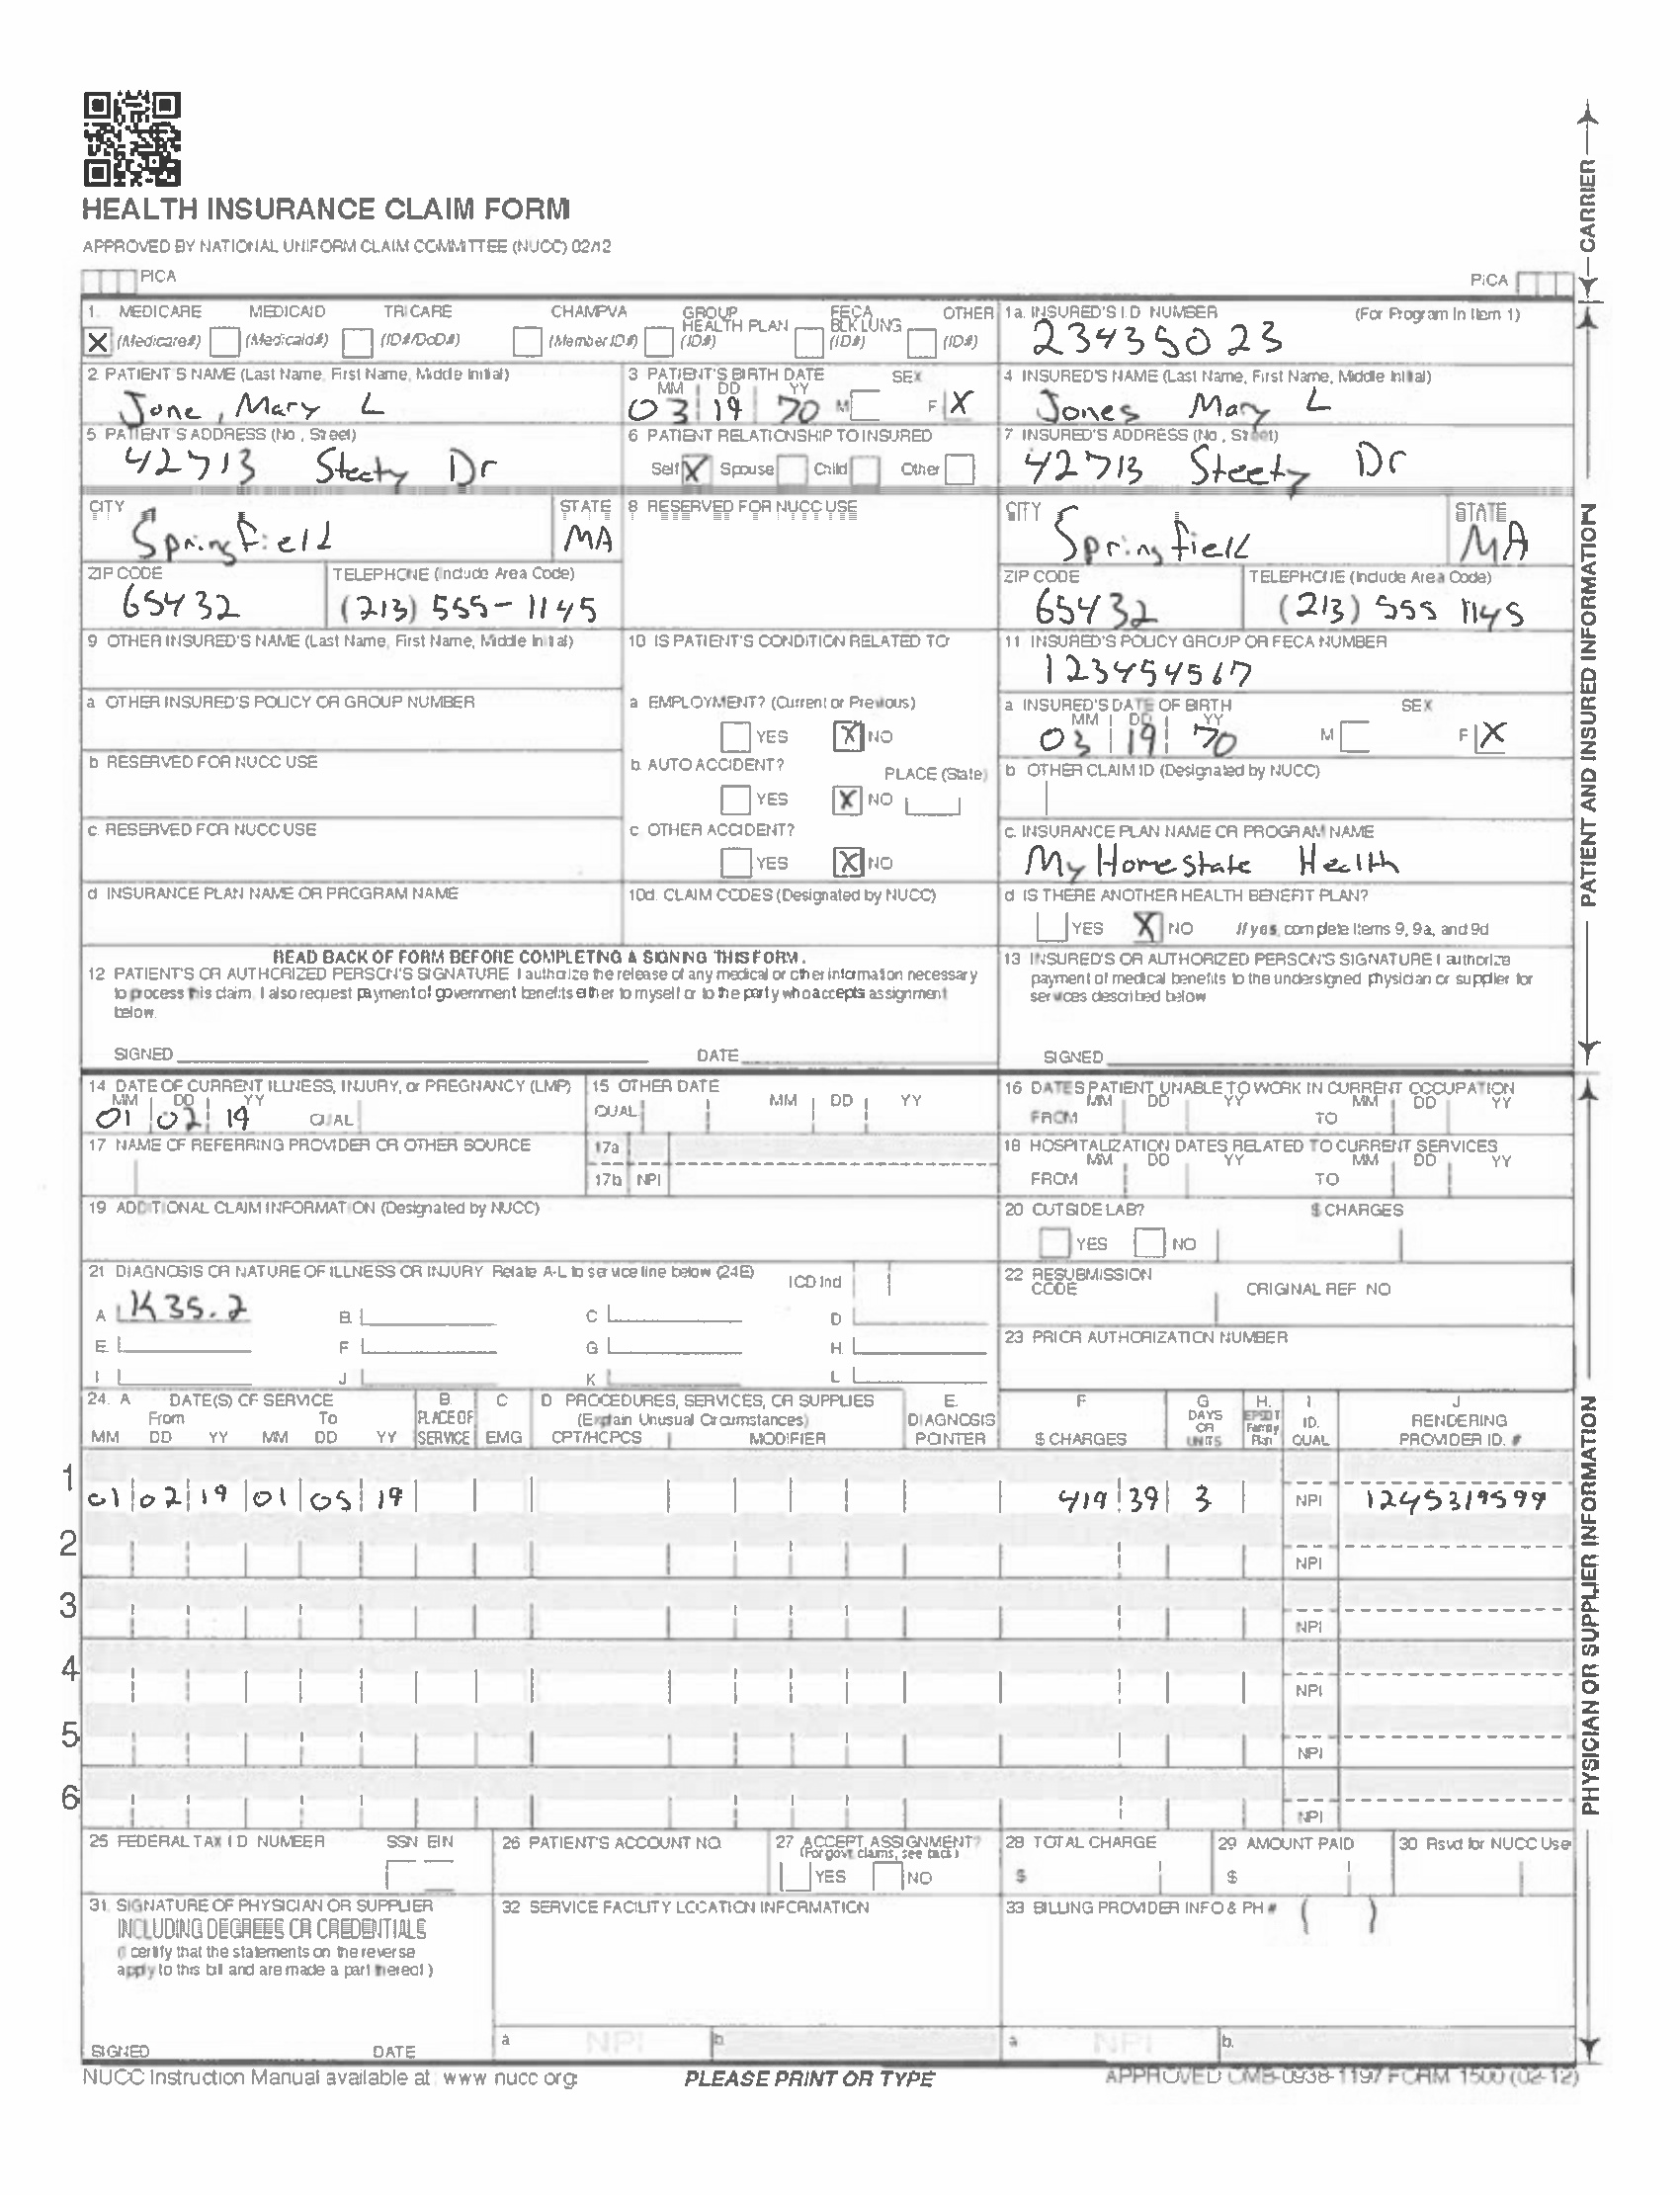 HEALTH INSURANCE CLAIM FORM
APPROVED BY NATIONAL UNIFORM CLAIM COMMITTEE (NUCC) 02/12
PICA PICA
CARRIER
1. MEDICARE MEDICAID TRICARE CHAMPVA GROUP HEALTH PLAN FECA BLK LUNG OTHER
X (Medicare#) (Medicaid#) (ID#/DoD#) (Member ID#) (ID#) (ID#) (ID#)
1a. INSURED'S I.D NUMBER (For Program In Item 1)
23435023
2 PATIENT S NAME (Last Name, First Name, Middle Initial)
Jone, Mary L
3 PATIENT'S BIRTH DATE SEX
MM DD YY
03 19 70 M F X
4 INSURED'S NAME (Last Name, First Name, Middle Initial)
Jones Mary L
5 PATIENT S ADDRESS (No , Street)
42713 Steety Dr
6 PATIENT RELATIONSHIP TO INSURED
Self X Spouse Child Other
7 INSURED'S ADDRESS (No , Street)
42713 Steety Dr
CITY STATE
Springfield MA
8 RESERVED FOR NUCC USE
CITY STATE
Springfield MA
ZIP CODE TELEPHONE (Include Area Code)
65432 (213) 555-1145
ZIP CODE TELEPHONE (Include Area Code)
65432 (213) 555 1145
9 OTHER INSURED'S NAME (Last Name, First Name, Middle Initial)
10 IS PATIENT'S CONDITION RELATED TO
11 INSURED'S POLICY GROUP OR FECA NUMBER
123454567
a OTHER INSURED'S POLICY OR GROUP NUMBER
a EMPLOYMENT? (Current or Previous)
YES X NO
a INSURED'S DATE OF BIRTH SEX
MM DD YY
03 19 70 M F X
b RESERVED FOR NUCC USE
b. AUTO ACCIDENT? PLACE (State)
YES X NO
b OTHER CLAIM ID (Designated by NUCC)
c. RESERVED FOR NUCC USE
c OTHER ACCIDENT?
YES X NO
c. INSURANCE PLAN NAME OR PROGRAM NAME
My Home State Health
d INSURANCE PLAN NAME OR PROGRAM NAME
10d. CLAIM CODES (Designated by NUCC)
d IS THERE ANOTHER HEALTH BENEFIT PLAN?
YES X NO If yes, complete items 9, 9a, and 9d
PATIENT AND INSURED INFORMATION
READ BACK OF FORM BEFORE COMPLETING & SIGNING THIS FORM.
12 PATIENT'S OR AUTHORIZED PERSON'S SIGNATURE I authorize the release of any medical or other information necessary
to process this claim. I also request payment of government benefits either to myself or to the party who accepts assignment
below.
SIGNED DATE
13 INSURED'S OR AUTHORIZED PERSON'S SIGNATURE I authorize
payment of medical benefits to the undersigned physician or supplier for
services described below
SIGNED
14 DATE OF CURRENT ILLNESS, INJURY, or PREGNANCY (LMP)
MM DD YY
01 02 19 QUAL
15 OTHER DATE
QUAL MM DD YY
16 DATES PATIENT UNABLE TO WORK IN CURRENT OCCUPATION
MM DD YY MM DD YY
FROM TO
17 NAME OF REFERRING PROVIDER OR OTHER SOURCE
17a
17b NPI
18 HOSPITALIZATION DATES RELATED TO CURRENT SERVICES
MM DD YY MM DD YY
FROM TO
19 ADDITIONAL CLAIM INFORMATION (Designated by NUCC)
20 OUTSIDE LAB? $ CHARGES
YES NO
21 DIAGNOSIS OR NATURE OF ILLNESS OR INJURY Relate A-L to service line below (24E) ICD Ind
A K35.2 B. C D
E. F G H.
I J K L
22 RESUBMISSION CODE ORIGINAL REF NO
23 PRIOR AUTHORIZATION NUMBER
24. A DATE(S) OF SERVICE B. C D PROCEDURES, SERVICES, OR SUPPLIES E. F G H. I J
From To PLACE OF (Explain Unusual Circumstances) DIAGNOSIS DAYS OR EPSDT Family ID. RENDERING
MM DD YY MM DD YY SERVICE EMG CPT/HCPCS MODIFIER POINTER $ CHARGES UNITS Plan QUAL PROVIDER ID. #
1 01 02 19 01 05 19 419 39 3 NPI 1245319599
2 NPI
3 NPI
4 NPI
5 NPI
6 NPI
PHYSICIAN OR SUPPLIER INFORMATION
25 FEDERAL TAX I D NUMBER SSN EIN
26 PATIENT'S ACCOUNT NO.
27 ACCEPT ASSIGNMENT?
(For govt. claims, see back)
YES NO
28 TOTAL CHARGE
$
29 AMOUNT PAID
$
30 Rsvd for NUCC Use
31 SIGNATURE OF PHYSICIAN OR SUPPLIER
INCLUDING DEGREES OR CREDENTIALS
(I certify that the statements on the reverse
apply to this bill and are made a part thereof )
SIGNED DATE
32 SERVICE FACILITY LOCATION INFORMATION
a NPI b.
33 BILLING PROVIDER INFO & PH # ( )
a NPI b.
NUCC Instruction Manual available at: www nucc org
PLEASE PRINT OR TYPE
APPROVED OMB-0938-1197 FORM 1500 (02-12)